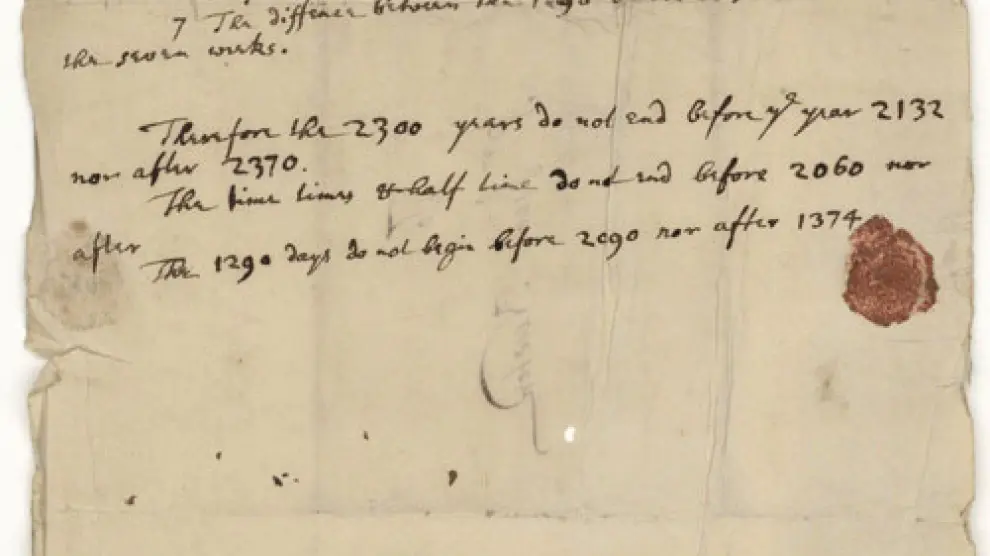 7 The diffence between the 1290
the seven weeks.
Therefore the 2300 years do not end before ye year 2132
nor after 2370.
The time times & half time do not end before 2060 nor
after
The 1290 days do not begin before 2090 nor after 1374